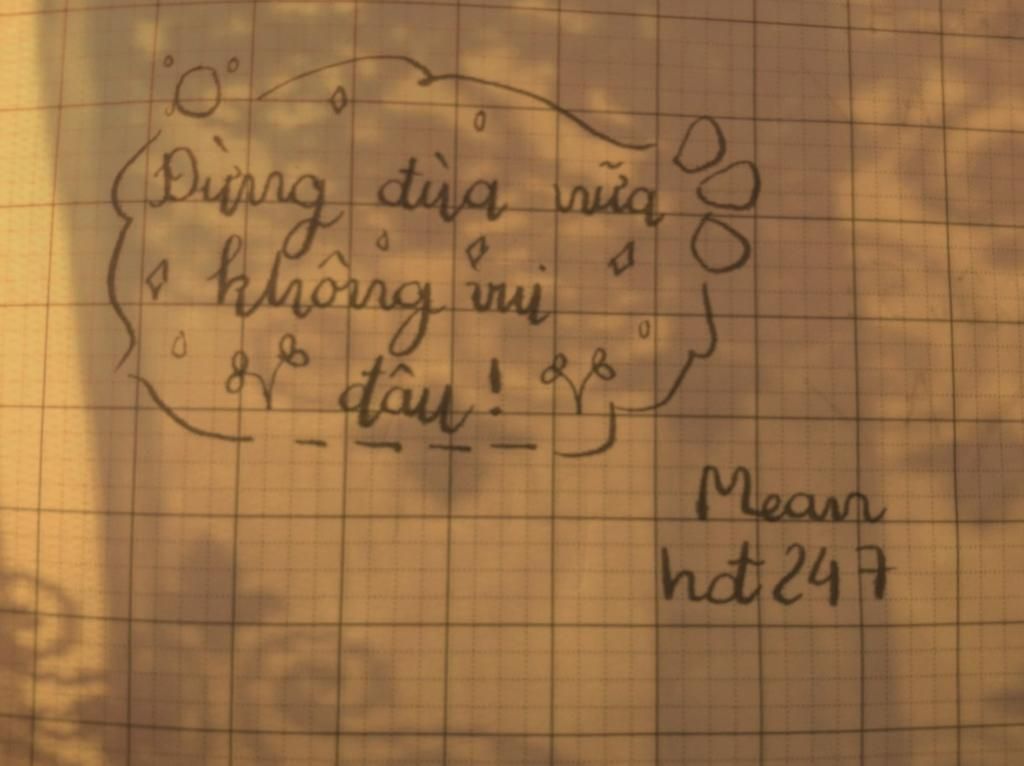 Đừng đùa nữa
không vui
đâu!
Mean
hot 247